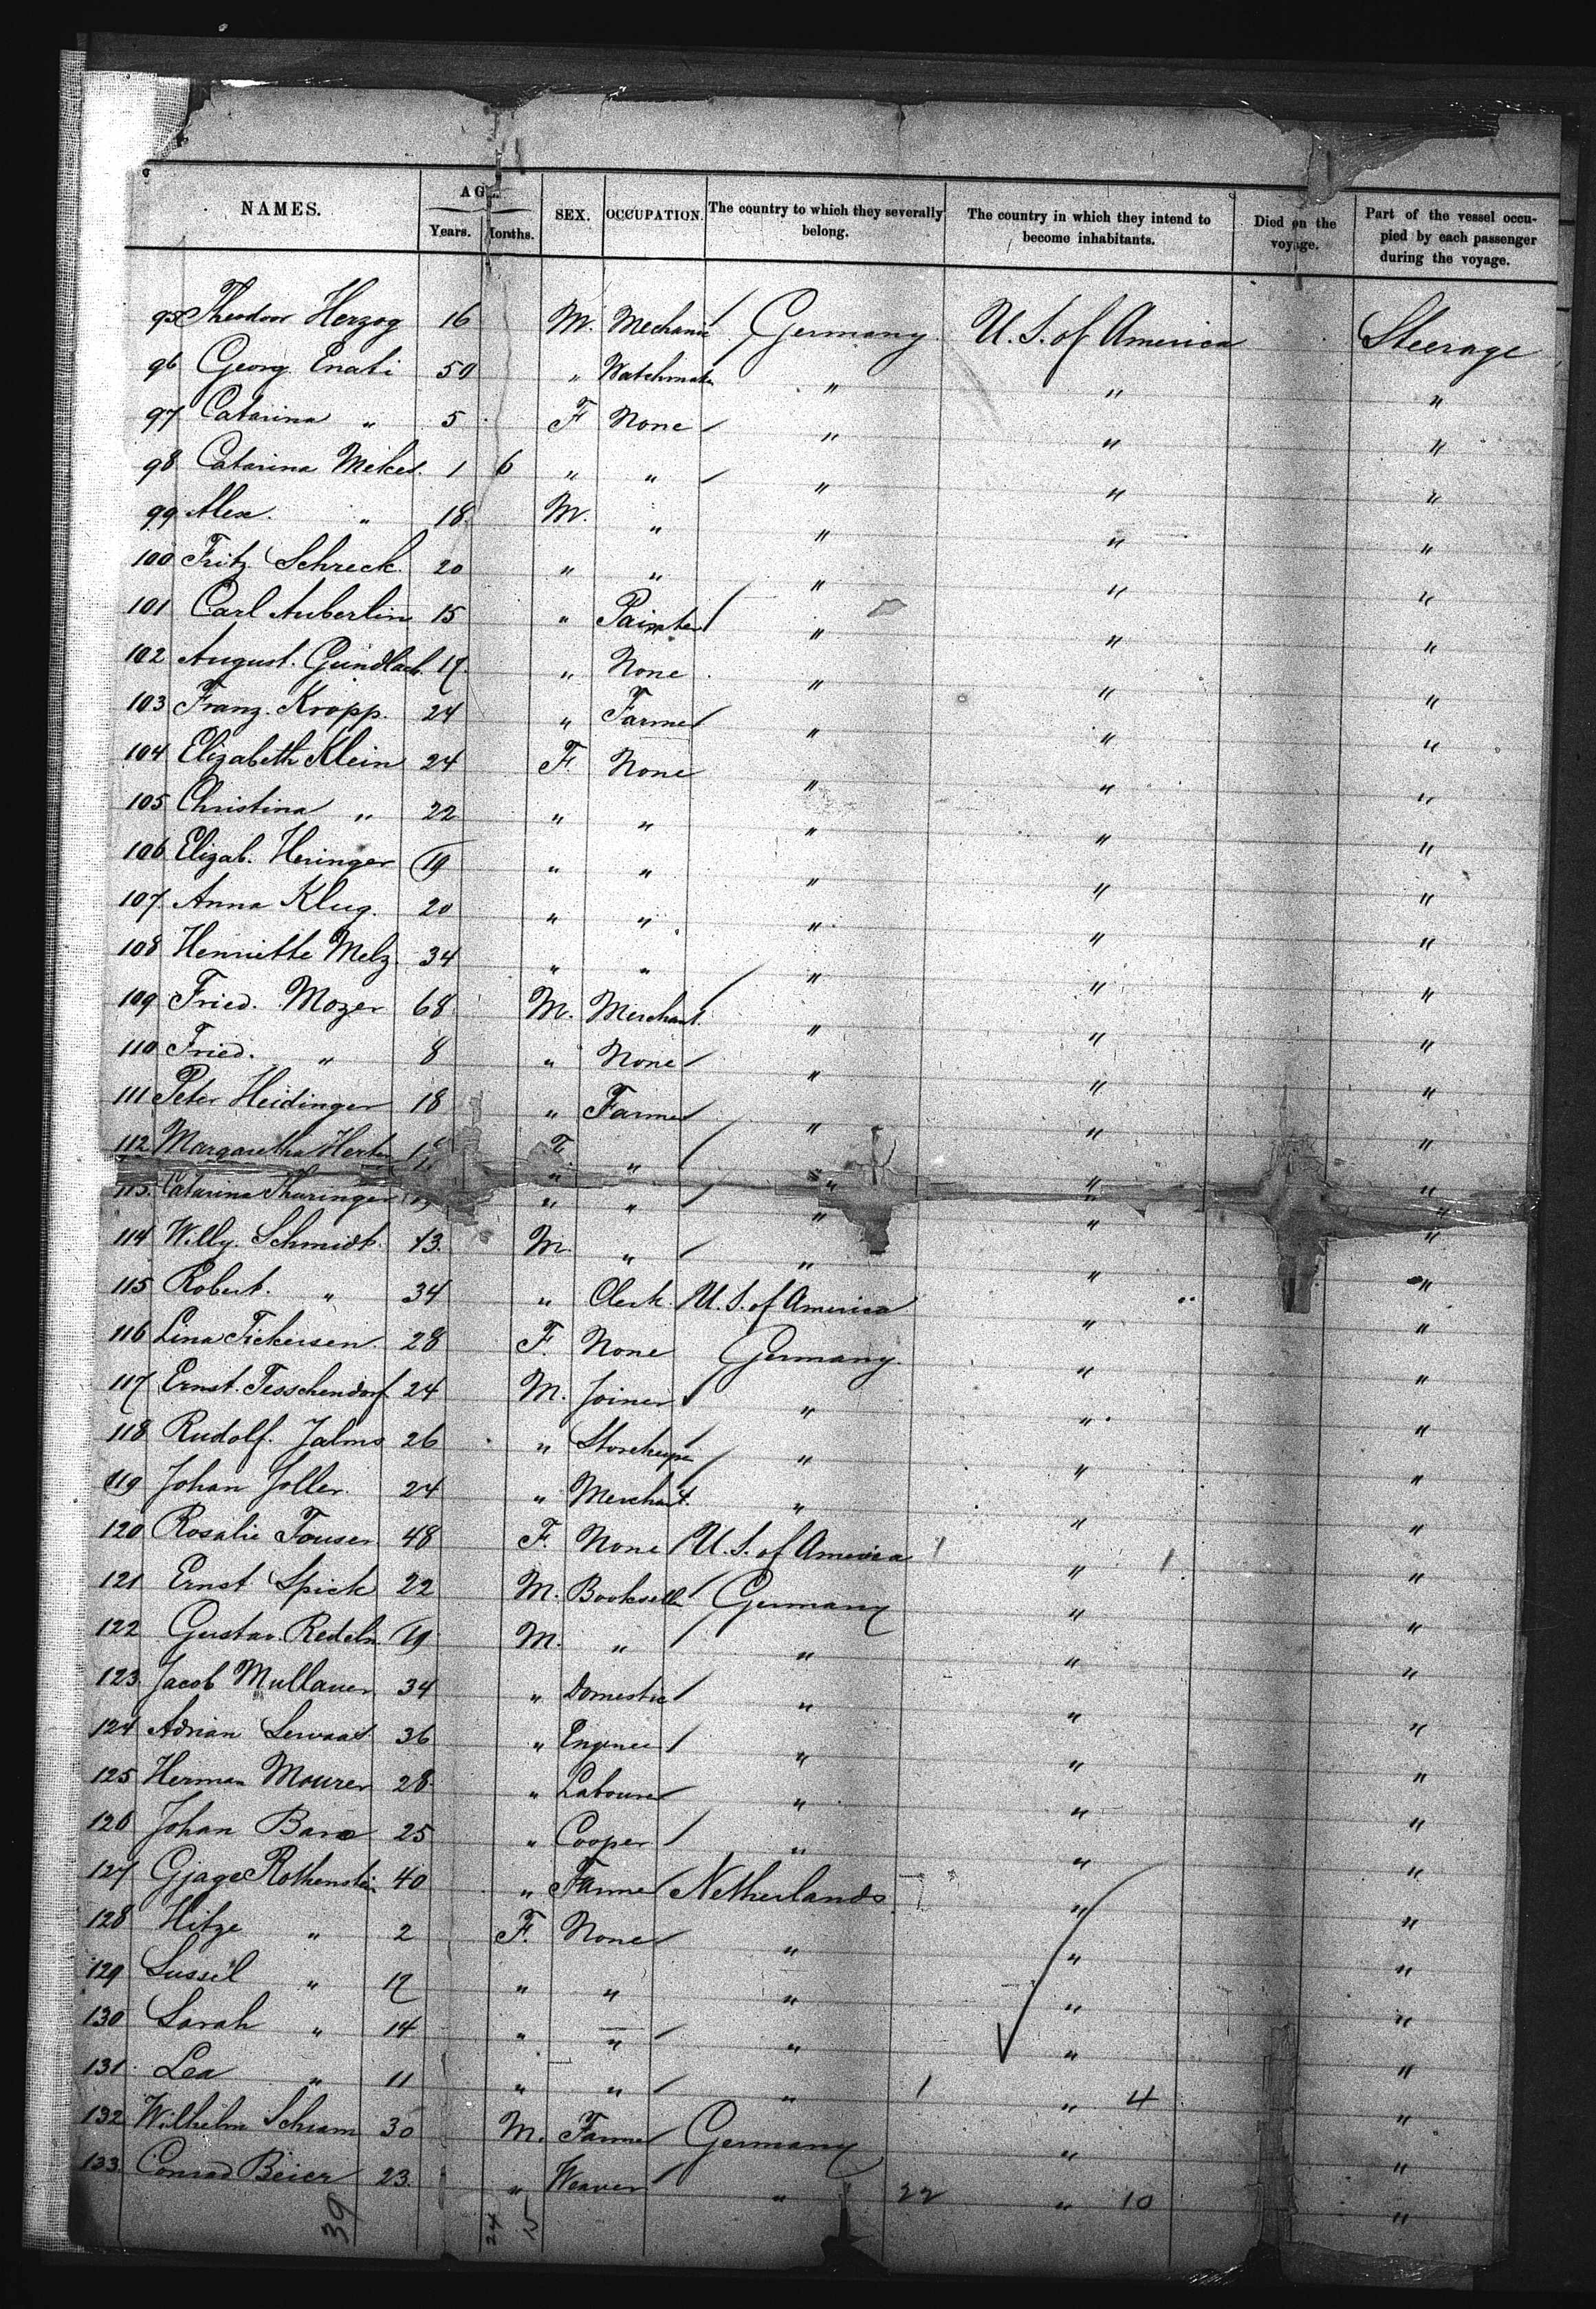 NAMES. AGE. SEX. OCCUPATION. The country to which they severally belong. The country in which they intend to become inhabitants. Died on the voyage. Part of the vessel occupied by each passenger during the voyage.
Years. Months.
95 Theodor Herzog 16 M. Mechanic Germany U. S. of America Steerage
96 Georg Enati 50 " Watchmaker " " "
97 Catarina " 5 F None " " "
98 Catarina 1 6 " " " " "
99 Alex. " 18 M. " " " "
100 Fritz Schreck 20 " " " " "
101 Carl Auberlin 15 " Painter " " "
102 August. Gundlach 17 " None " " "
103 Franz. Kropp. 24 " Farmer " " "
104 Elizabeth Klein 24 F. None " " "
105 Christina " 22 " " " " "
106 Elizab. Heringer 19 " " " " "
107 Anna Klug. 20 " " " " "
108 Henriette Melz. 34 " " " " "
109 Fried. Mozer 68 M. Merchant " " "
110 Fried. " 8 " None " " "
111 Peter Heidinger 18 " Farmer " " "
112 Margaretha F. " " " "
113 Catarina Thuringer 19 " " " " "
114 Willy. Schmidt. 13. M. " " " "
115 Robert. " 34 " Clerk. U. S. of America " "
116 Lina Fickersen. 28 F. None Germany. " "
117 Ernst. Tesschendorf 24 M. Joiner " " "
118 Rudolf. Jalms 26 " Storekeeper " " "
119 Johan Joller. 24 " Merchant. " " "
120 Rosalie Fouser 48 F. None U. S. of America " "
121 Ernst Spick 22 M. Bookseller Germany " "
122 Gustav. Redeln 19 M. " " " "
123 Jacob Mullauer 34 " Domestic " " "
124 Adrian Servaas 36 " Engineer " " "
125 Herman Mourer 28 " Labourer " " "
126 Johan 25 " Cooper " " "
127 Gjage Rothenstein 40 " Farmer Netherlands " "
128 Hitze " 2 F. None " " "
129 Sussel " 17 " " " " "
130 Sarah " 14 " " " " "
131 Lea " 11 " " " 1 " 4 "
132 Wilhelm Schram 30 M. Farmer Germany " "
133 Conrad Beier 23. " Weaver " 22 " 10 "
39 24 15